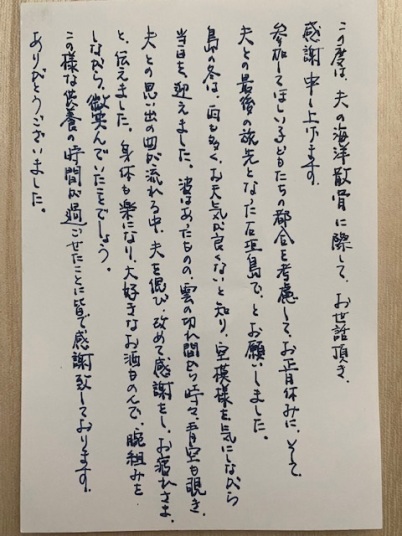 この度は、夫の海洋散骨に際して、お世話頂き、
感謝申し上げます。
参加してほしい子どもたちの都合を考慮して、お正月休みに、そして
夫との最後の旅先となった石垣島で、とお願いしました。
島の冬は、雨も多く、お天気が良くないと知り、空模様を気にしながら
当日を迎えました。波はあったものの、雲の切れ間から時々、青空も覗き、
夫との思い出の曲が流れる中、夫を偲び、改めて感謝をし、お疲れさま、
と、伝えました。身体も楽になり、大好きなお酒ものんで、腕組みを
しながら、微笑んでいたことでしょう。
この様な供養の時間が過ごせたことに皆で感謝致しております。
ありがとうございました。